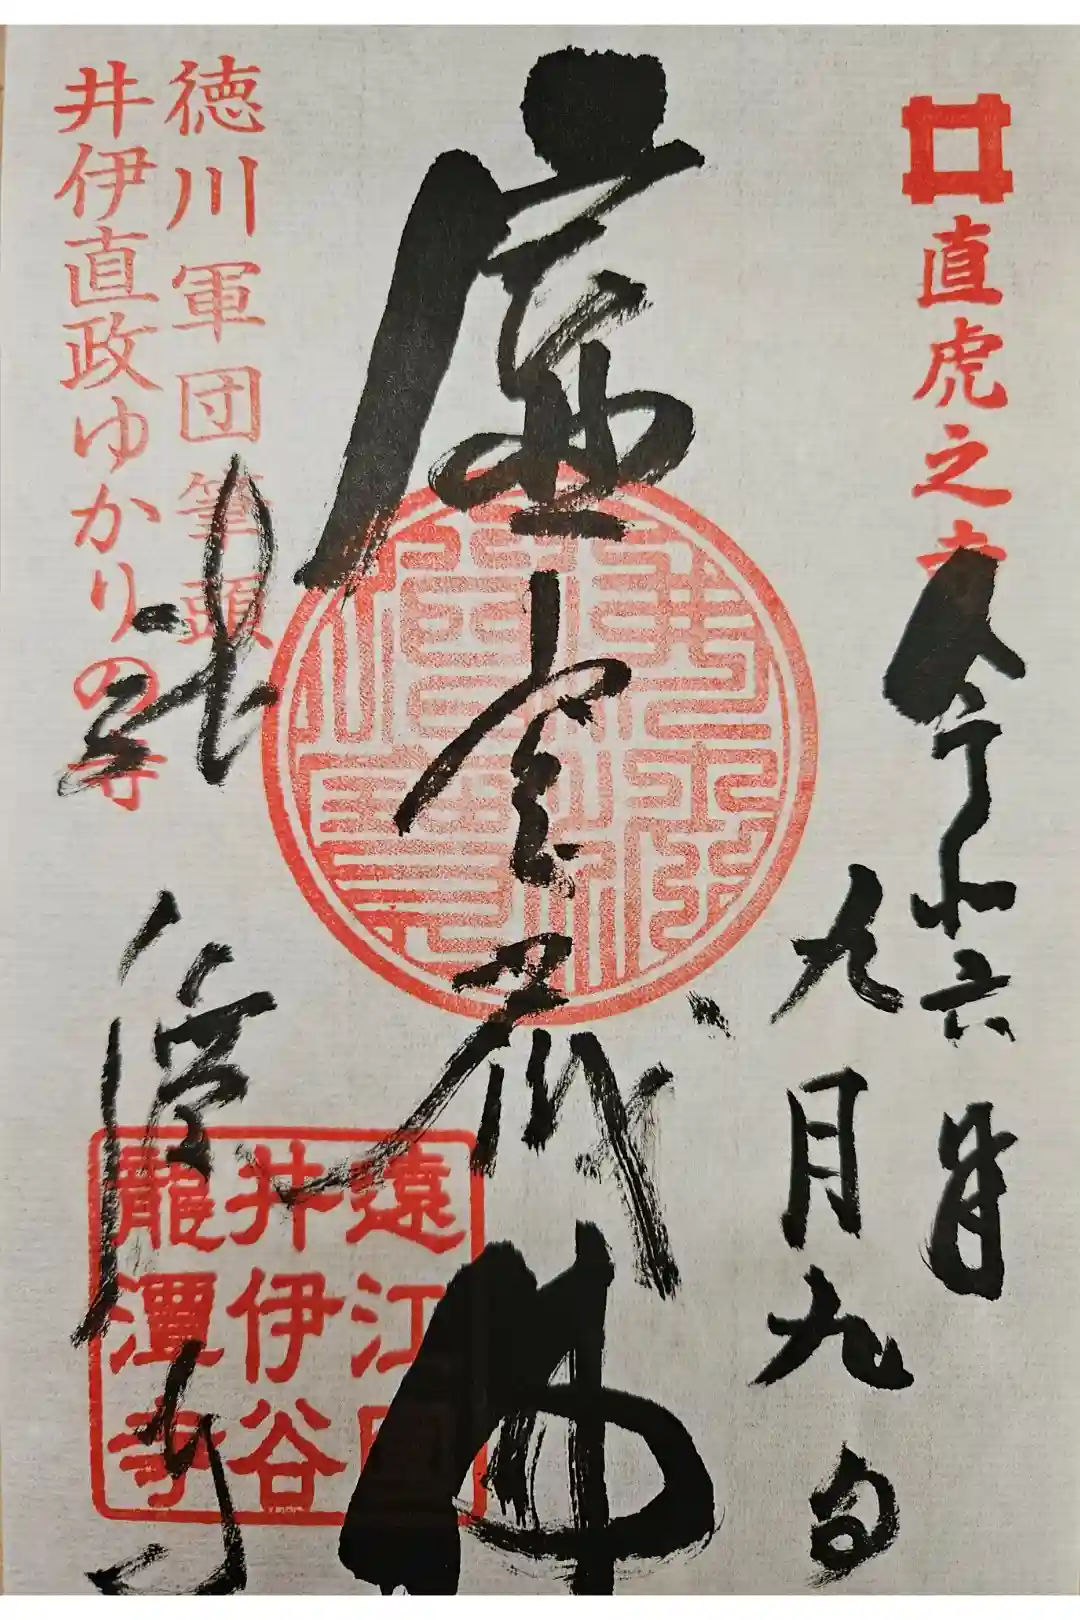 直虎之寺
令和六年
九月九日
虚空蔵佛
徳川軍団筆頭
井伊直政ゆかりの寺
龍潭寺
遠江國
井伊谷
龍潭寺